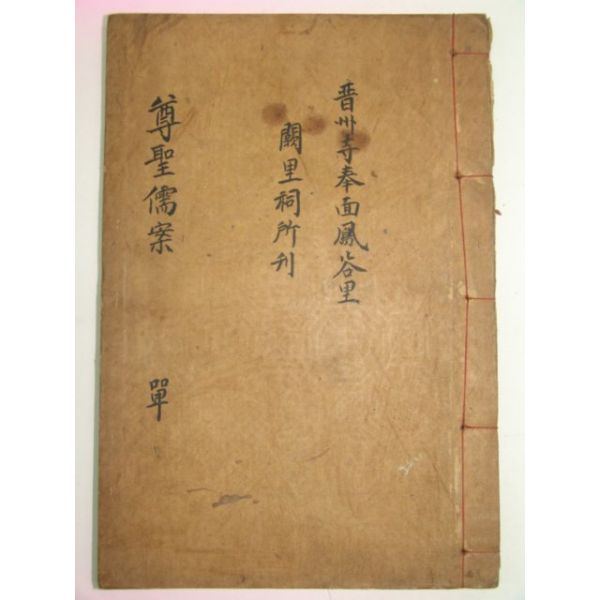 晋州寺奉面鳳谷里
闕里祠所刊
尊聖儒案 單